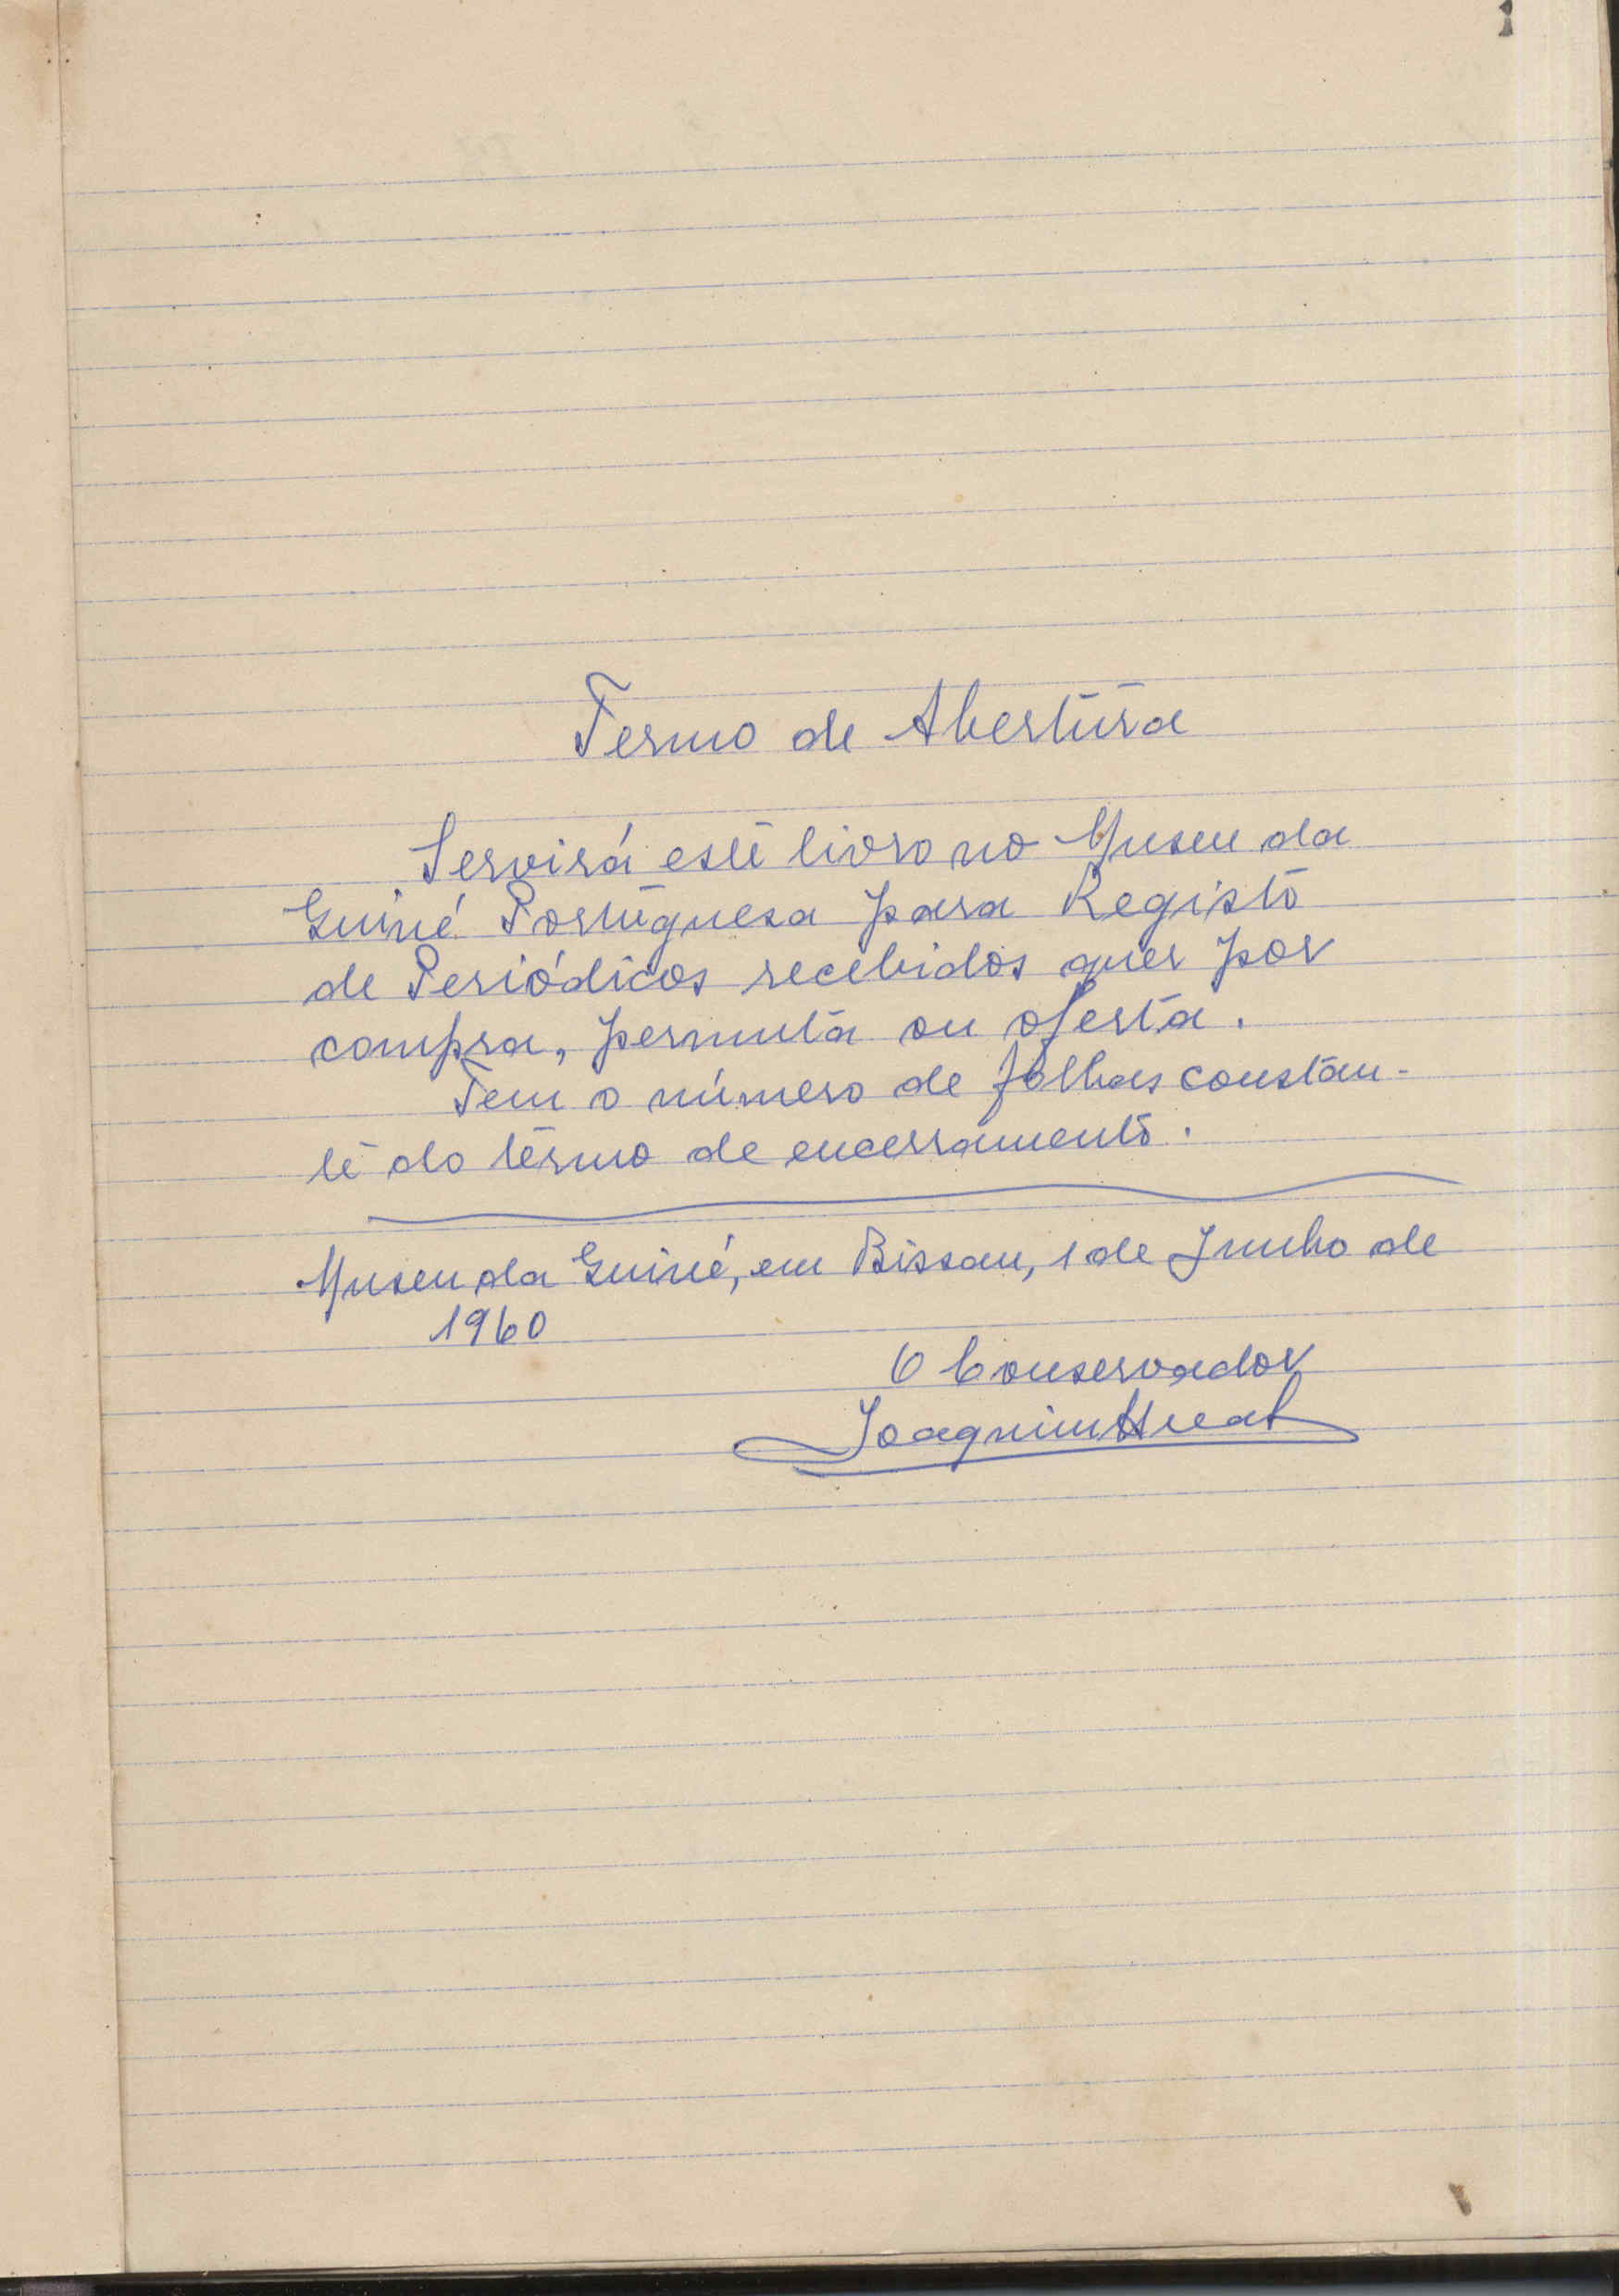 1
Termo de Abertura
Servirá este livro no Museu da
Guiné Portuguesa para Registo
de Periódicos recebidos quer por
compra, permuta ou oferta.
Tem o número de folhas constan-
te do têrmo de encerramento.
Museu da Guiné, em Bissau, 1 de Junho de
1960
O Conservador
Joaquim